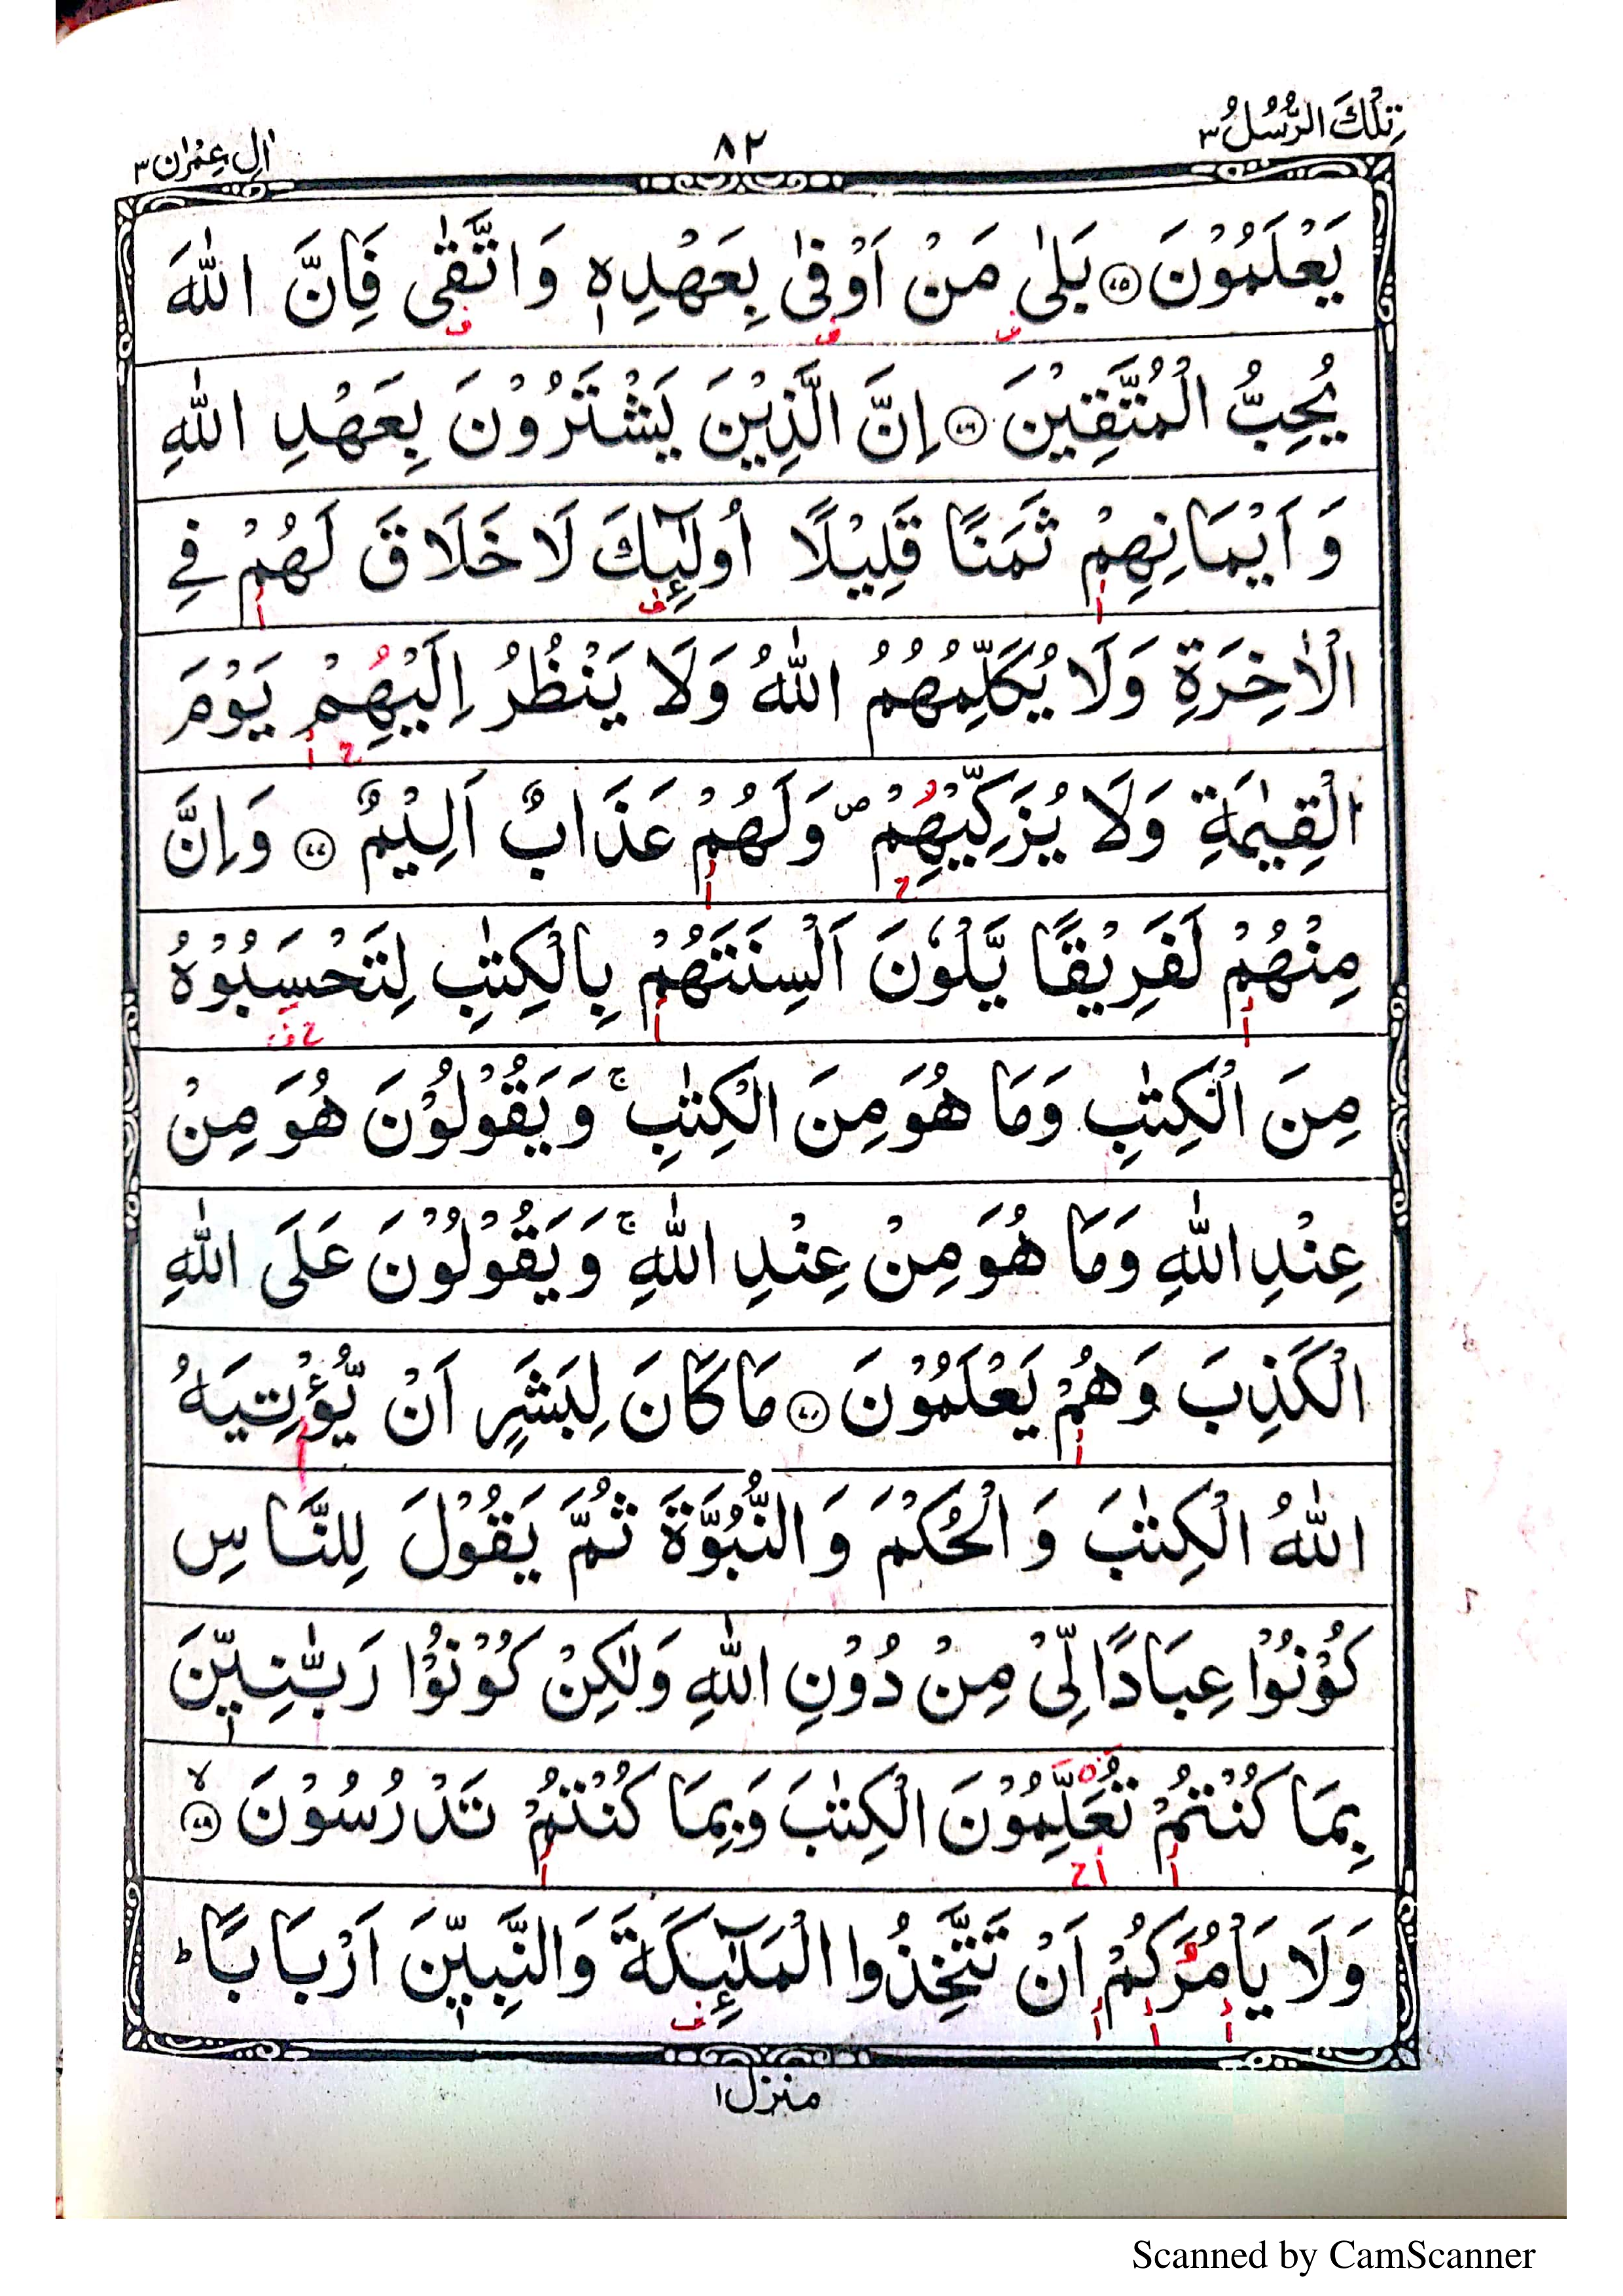 تِلْكَ الرُّسُلُ ٣
٨٢
اٰلِ عِمْرٰن ٣
يَعْلَمُوْنَ ۝٧٥ بَلٰى مَنْ اَوْفٰى بِعَهْدِهٖ وَاتَّقٰى فَاِنَّ اللّٰهَ
يُحِبُّ الْمُتَّقِيْنَ ۝٧٦ اِنَّ الَّذِيْنَ يَشْتَرُوْنَ بِعَهْدِ اللّٰهِ
وَاَيْمَانِهِمْ ثَمَنًا قَلِيْلًا اُولٰٓئِكَ لَا خَلَاقَ لَهُمْ فِي
الْاٰخِرَةِ وَلَا يُكَلِّمُهُمُ اللّٰهُ وَلَا يَنْظُرُ اِلَيْهِمْ يَوْمَ
الْقِيٰمَةِ وَلَا يُزَكِّيْهِمْ ۪ وَلَهُمْ عَذَابٌ اَلِيْمٌ ۝٧٧ وَاِنَّ
مِنْهُمْ لَفَرِيْقًا يَّلْوٗنَ اَلْسِنَتَهُمْ بِالْكِتٰبِ لِتَحْسَبُوْهُ
مِنَ الْكِتٰبِ وَمَا هُوَ مِنَ الْكِتٰبِ ۚ وَيَقُوْلُوْنَ هُوَ مِنْ
عِنْدِ اللّٰهِ وَمَا هُوَ مِنْ عِنْدِ اللّٰهِ ۚ وَيَقُوْلُوْنَ عَلَى اللّٰهِ
الْكَذِبَ وَهُمْ يَعْلَمُوْنَ ۝٧٨ مَا كَانَ لِبَشَرٍ اَنْ يُّؤْتِيَهُ
اللّٰهُ الْكِتٰبَ وَالْحُكْمَ وَالنُّبُوَّةَ ثُمَّ يَقُوْلَ لِلنَّاسِ
كُوْنُوْا عِبَادًا لِّيْ مِنْ دُوْنِ اللّٰهِ وَلٰكِنْ كُوْنُوْا رَبّٰنِيّٖنَ
بِمَا كُنْتُمْ تُعَلِّمُوْنَ الْكِتٰبَ وَبِمَا كُنْتُمْ تَدْرُسُوْنَ ۙ۝٧٩
وَلَا يَاْمُرَكُمْ اَنْ تَتَّخِذُوا الْمَلٰٓئِكَةَ وَالنَّبِيّٖنَ اَرْبَابًا ؕ
منزل ١
Scanned by CamScanner